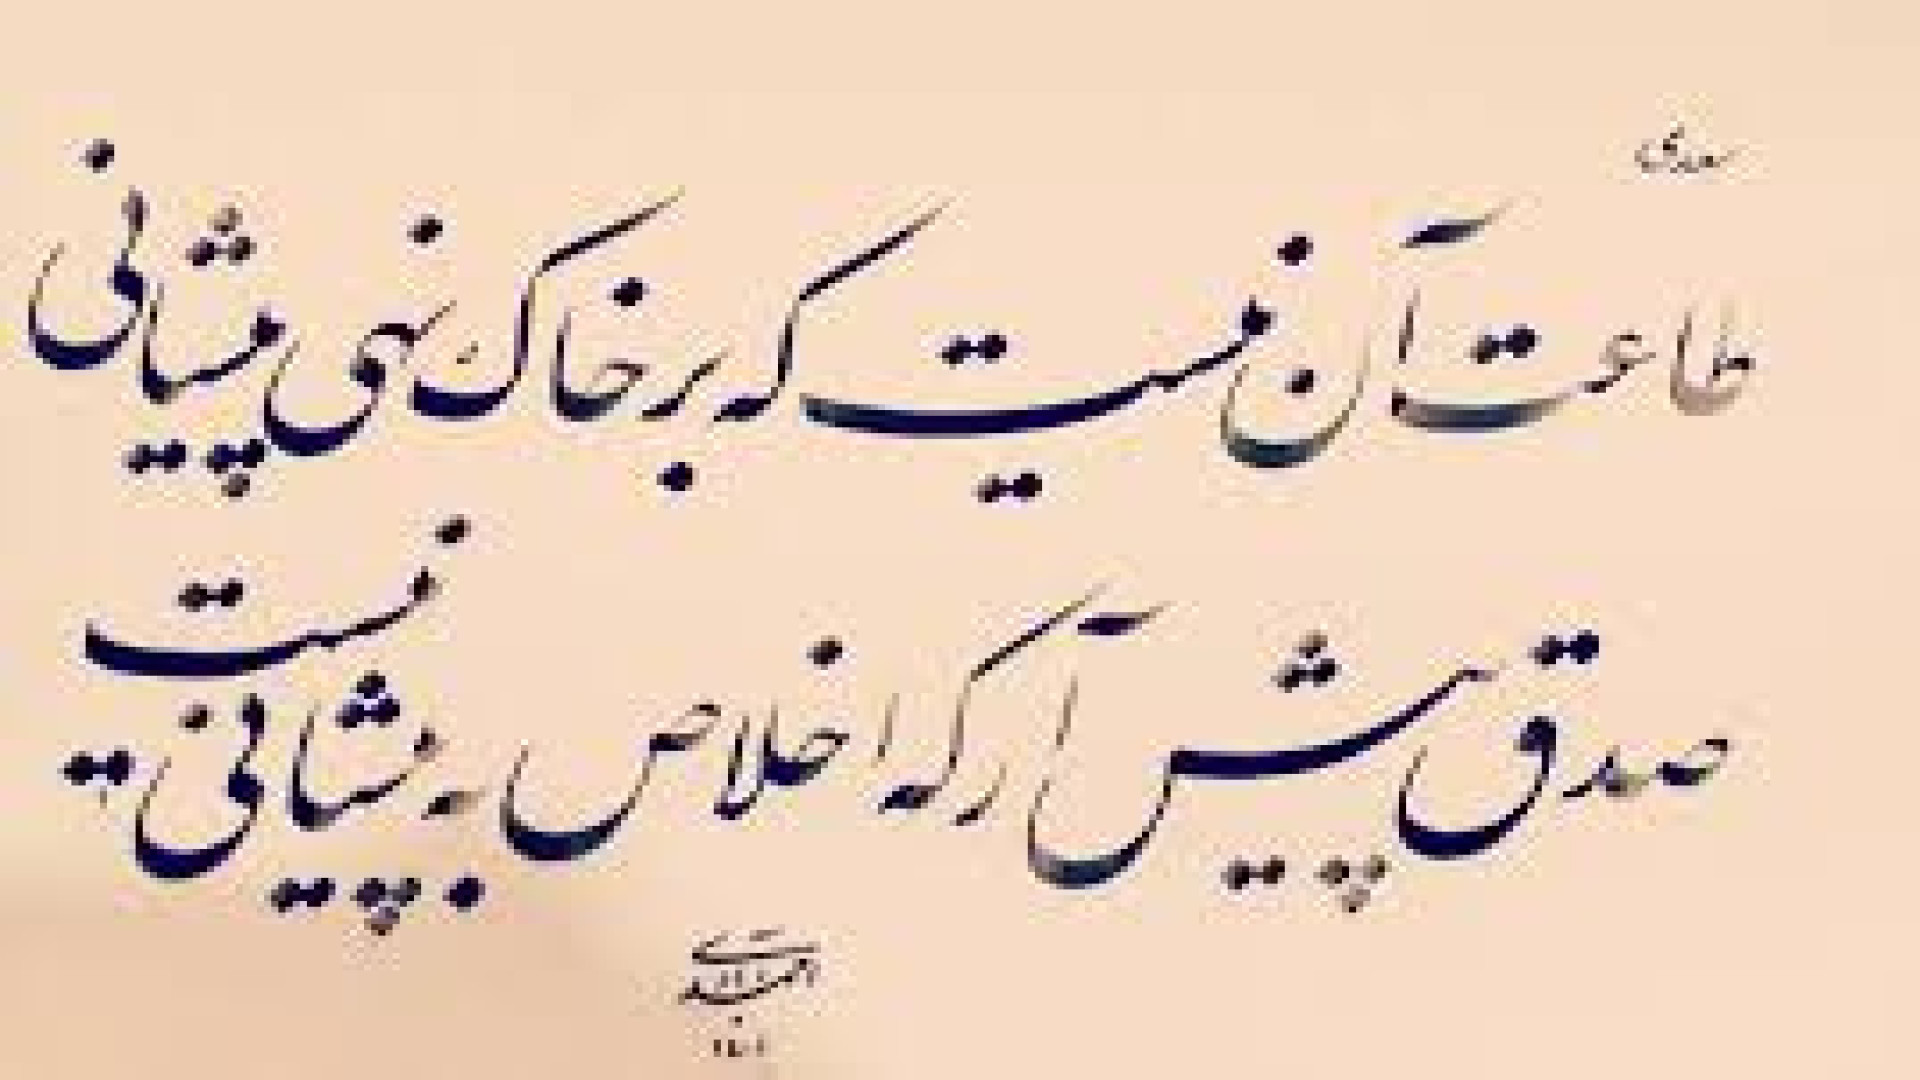 سعدی
طاعت آن نیست که بر خاک نهی پیشانی
صدق پیش آر که اخلاص به پیشانی نیست
۱۴۰۱